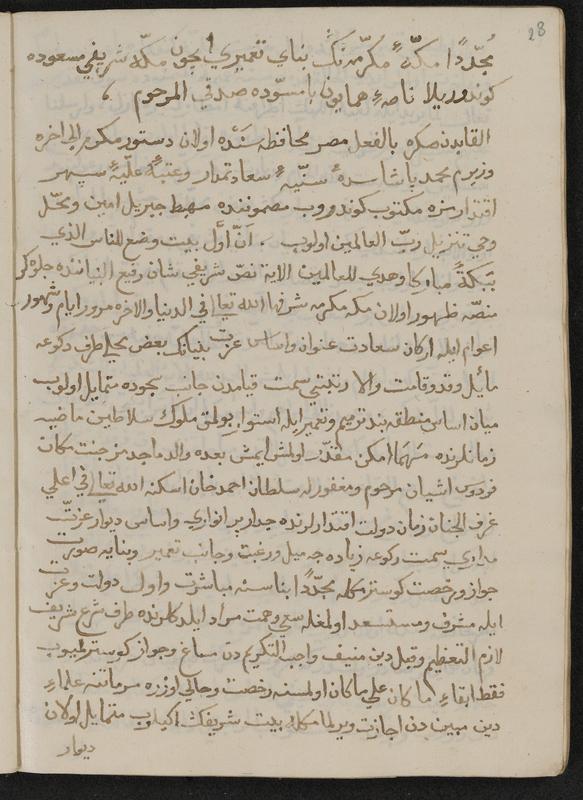 28
مُجدّدًا مكّهٔ مكرّمه نَكَ بنای تعمیری ایچون مكّه شریفی مسعوده
كوندوریلا نامهٔ همایون بامسوّده صدقی المرحوم
القابدن صكره بالفعل مصر محافظه سَنْده اولان دستور مكرم الی اخره
وزیرم محمد پاشا سدهٔ سنیّهٔ سعادتمدار وعتبهٔ علیّهٔ سپهر
اقتدارمزه مكتوب كوندروب مضمونده مهبط جبریل امین ومحلّ
وحی تنزیل ربّ العالمین اولوب انّ اوّل بیت وضع للناس الذی
ببكةً مباركا وهدی للعالمین الایة نصّ شریفی نشان رفیع البنیاننده جلوه كر
منصّه ظهور اولان مكه مكرمه شرفها الله تعالی فی الدنیا والاخره مرور ایام وشهور
اعوام ایله اركان سعادت عنوان واساس عزت بنیانك بعض محللری طرف ركوعه
مائل وقد وقامت والا رتبتی سمت قیامدن جانب سجوده متمایل اولوب
میان اساس منطقه بند ترمیم وتعمیر ایله استوار بولمق ملوك سلاطین ماضیه
زمانلرنده مَهمَا امكن مقدّر اولمش ایمش بعده والد ماجدمز جنت مكان
فردوس اشیان مرحوم ومغفور له سلطان احمد خان اسكنه الله تعالی فی اعلی
غرف الجنان زمان دولت اقتدارلرنده جدار پر انواری واساس دیوار عزت
مداری سمت ركوعه زیاده جه میل ورغبت وجانب تعمیر وبنایه صورت
جواز ورخصت كوسترمكله مجدّدًا بناسنه مباشرت واول دولت وعزت
ایله مشرف ومستسعد اولمغله سعی وهمت مراد ایلدكلرنده طرف شرع شریف
لازم التعظیم وقبل دین منیف واجب التكریم دن مساغ وجواز كوسترلمیوب
فقط ابقاءِ ما كان علی ما كان اولمسنه رخصت وحالی اوزره مرمتنه علماءِ
دین مبین دن اجازت ویرلمكله بیت شریفك اكیلوب متمایل اولان
دیوار